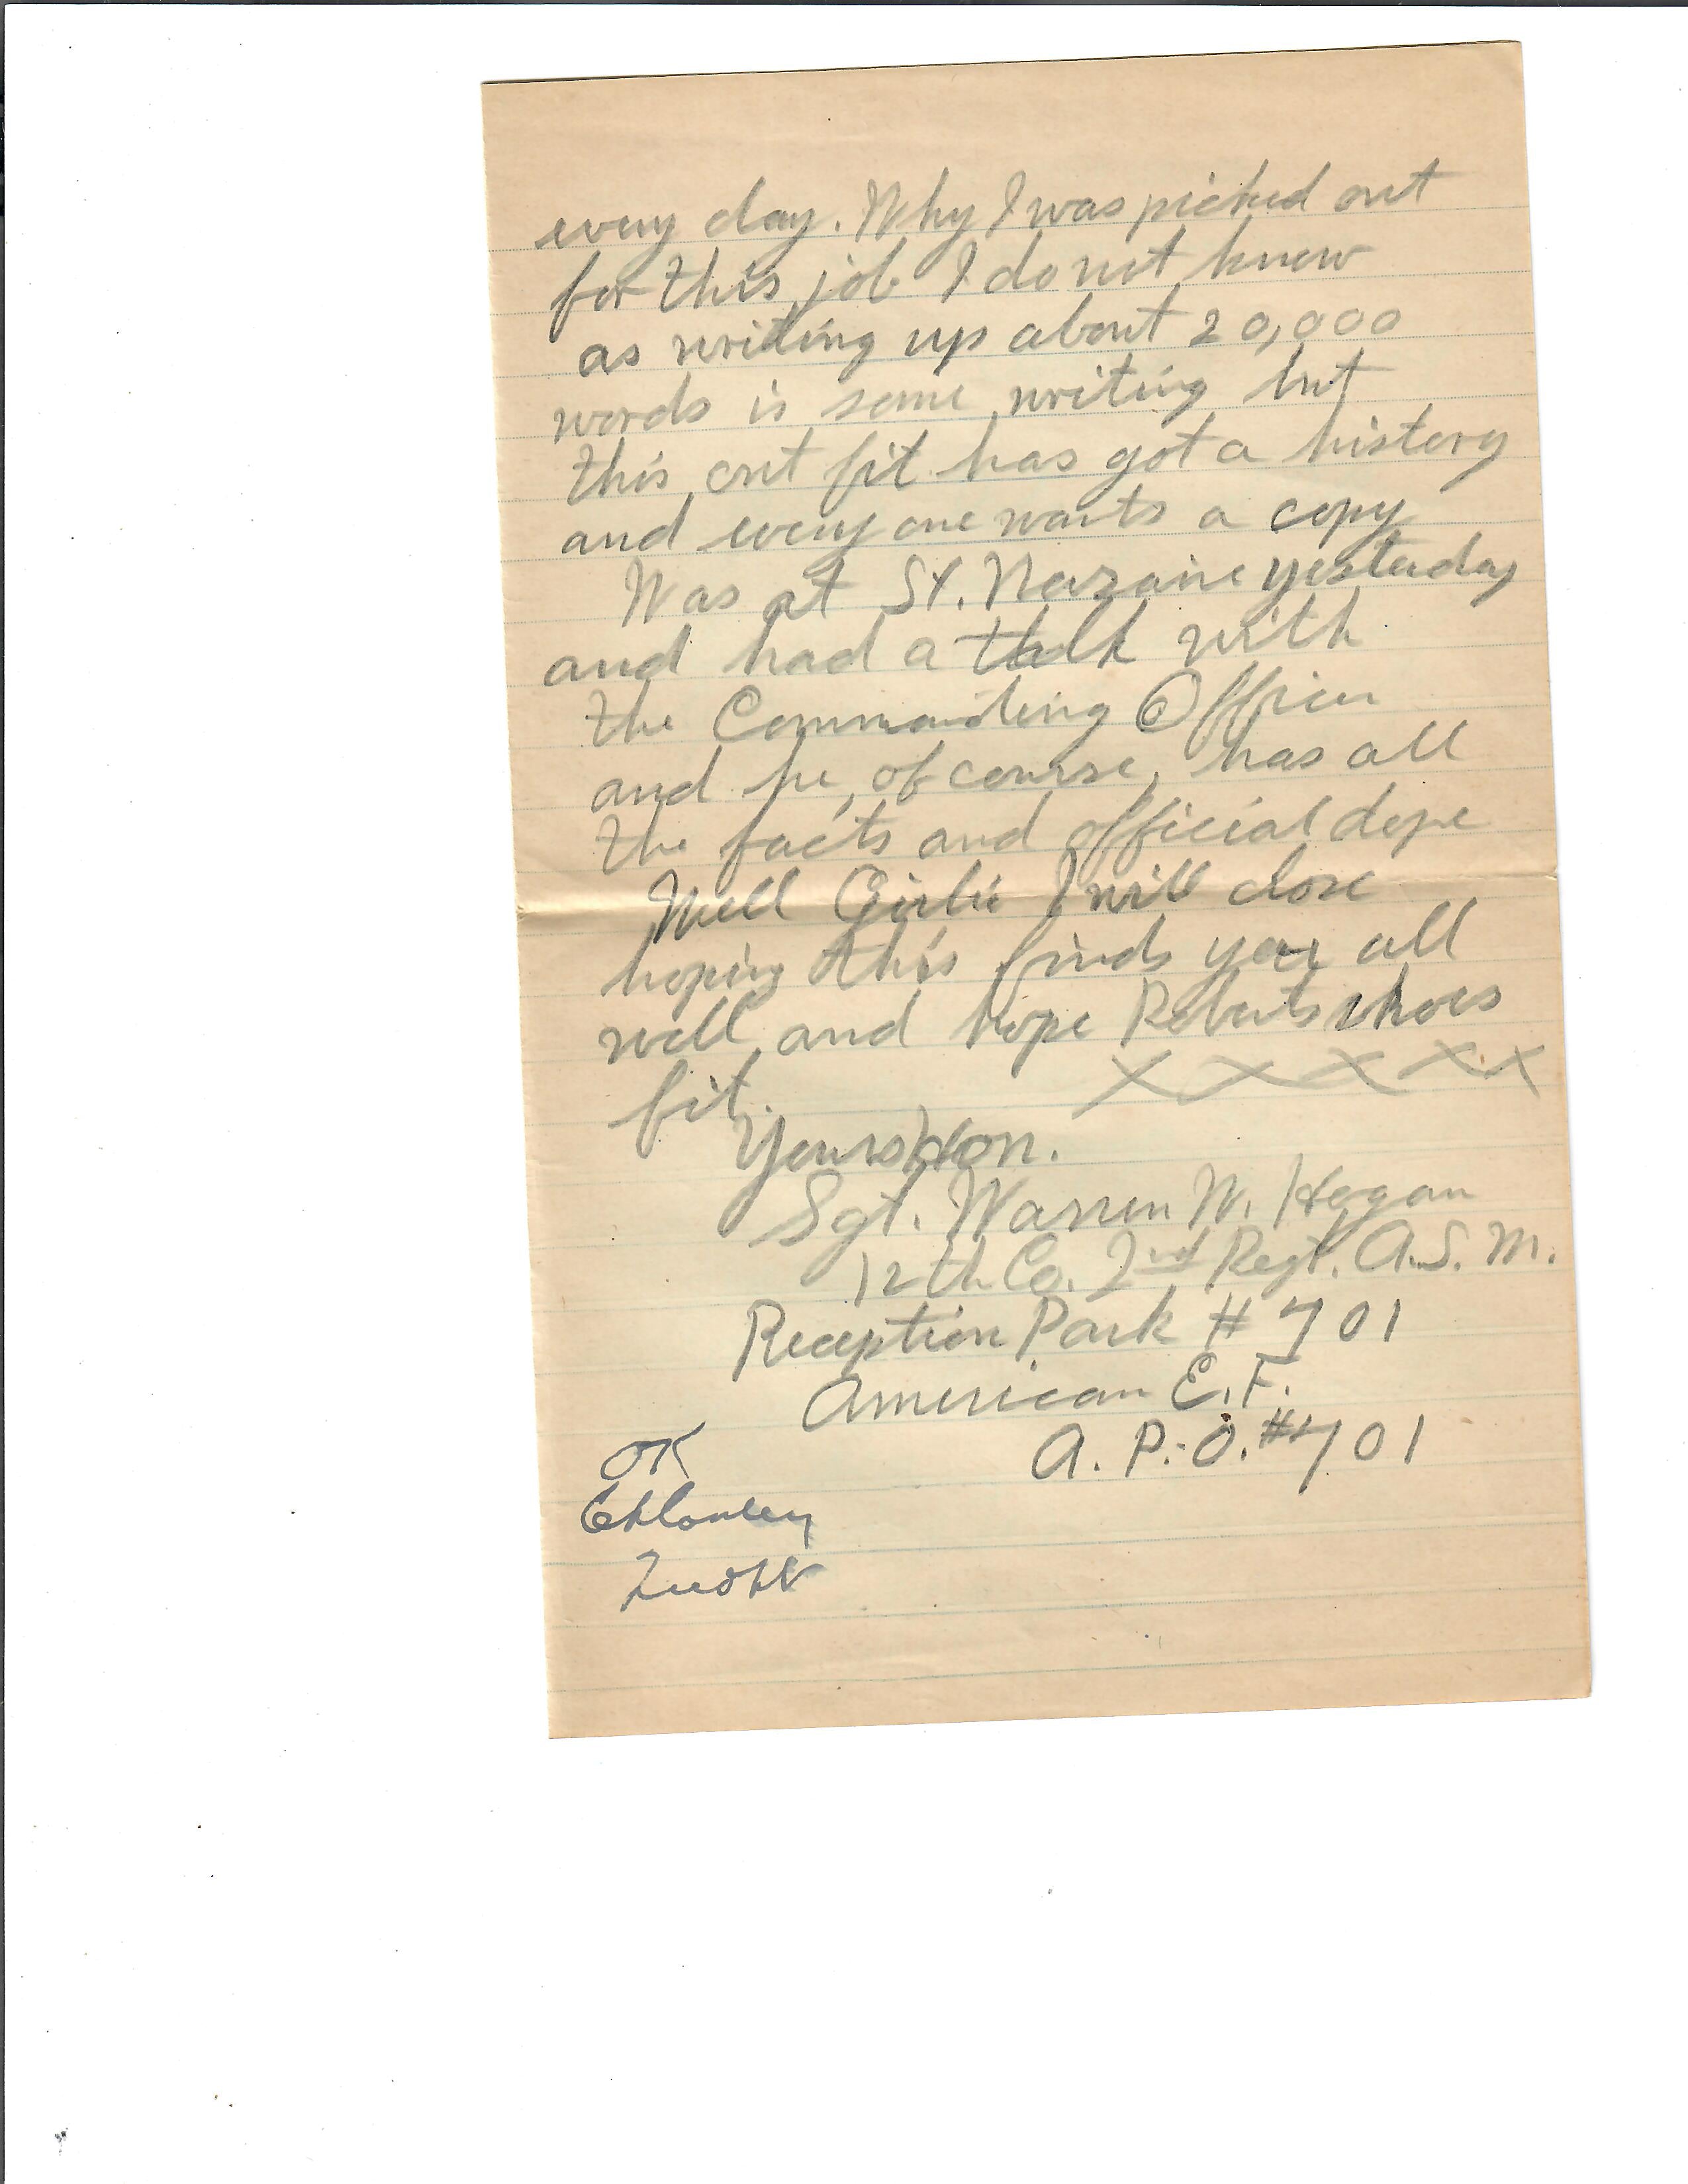 every day. Why I was picked out
for this job I do not know
as writing up about 20,000
words is some writing but
this out fit has got a history
and every one wants a copy
Was at St. Nazaire yesterday
and had a talk with
the Commanding Officer
and he, of course, has all
the facts and official dope
Well Girlie I will close
hoping this finds you all
well and hope Roberts shoes
fit. X X X X X
Yours Hon.
Sgt. Warren W. Hogan
12th Co. 2nd Regt. A.S.M.
Reception Park # 701
American E.F.
A.P.O. #701
OK